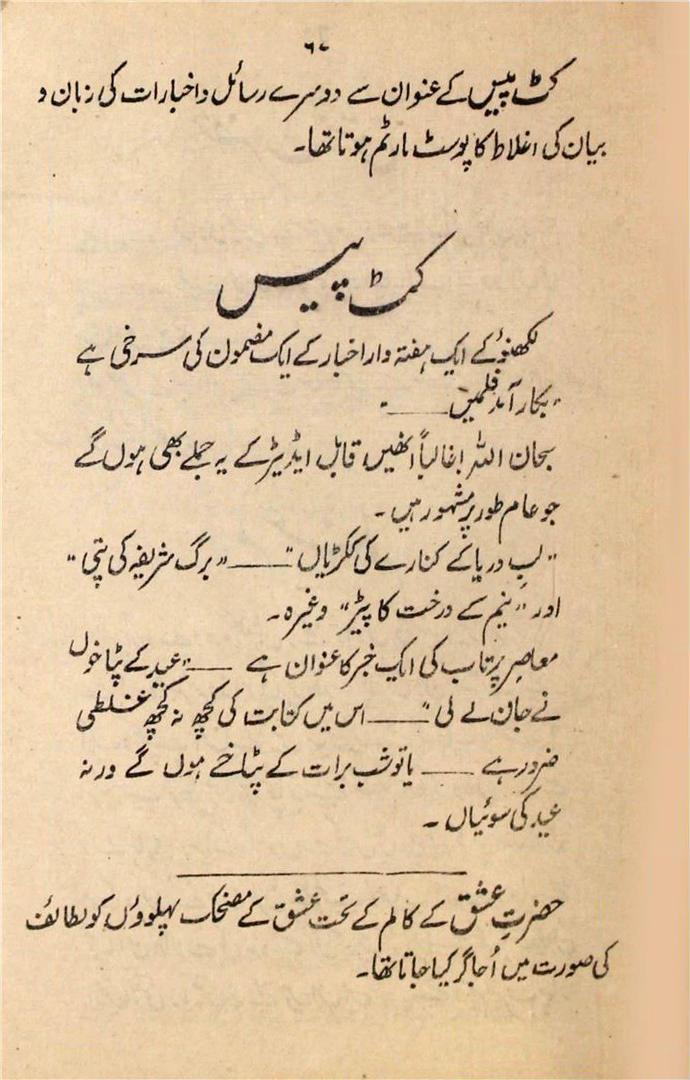 ۶۷
کٹ پیس کے عنوان سے دوسرے رسائل و اخبارات کی زبان و
بیان کی اغلاط کا پوسٹ مارٹم ہوتا تھا۔
کٹ پیس
لکھنؤ کے ایک ہفتہ وار اخبار کے ایک مضمون کی سرخی ہے
"بکار آمد فلمیں ——"
سبحان اللہ! غالباً انھیں قابل ایڈیٹر کے یہ جملے بھی ہوں گے
جو عام طور پر مشہور ہیں۔
"لبِ دریا کے کنارے کی ککڑیاں" —— "برگ شریفہ کی پتی"
اور "نیم کے درخت کا پیڑ" وغیرہ۔
معاصر پرتاب کی ایک خبر کا عنوان ہے —— "عید کے پٹاخوں
نے جان لے لی" —— اس میں کتابت کی کچھ نہ کچھ غلطی
ضرور ہے —— یا تو شب برات کے پٹاخے ہوں گے ورنہ
عید کی سوئیاں۔
حضرتِ عشق کے کالم کے تحت عشق کے مضحک پہلوؤں کو لطائف
کی صورت میں اُجاگر کیا جاتا تھا۔